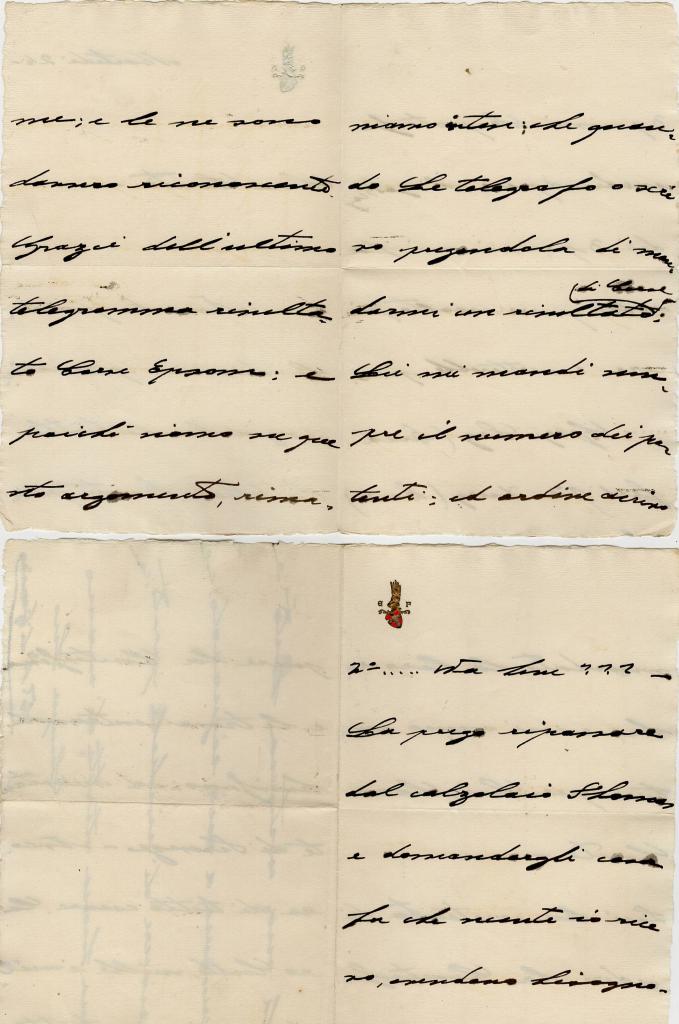 me; e le ne sono
davvero riconoscente.
Grazie dell'ultimo
telegramma risulta-
to Corse Epsom: e
poiché siamo su que
sto argomento, rima-
niamo intesi; che quan-
do Le telegrafo o scri
vo pregandola di man-
(di Corse
darmi un risultato;
Lei mi mandi sem-
pre il numero dei par-
tenti; ed ordine arrivo
B P
2º..... Va bene ???—
La prego ripassare
dal calzolaio Thomas
e domandargli cosa
fa che niente io rice
vo, avendone bisogno.